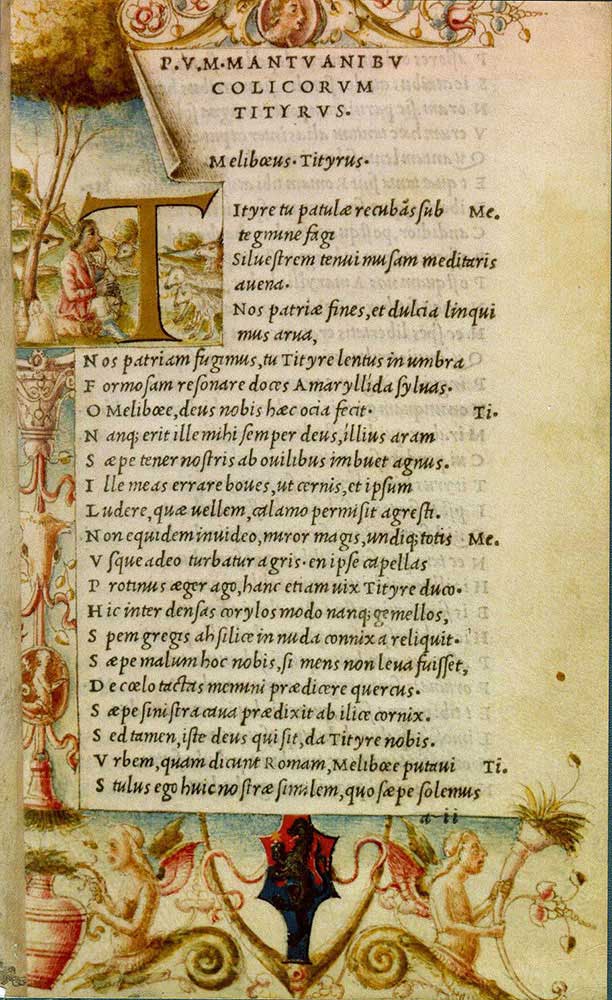 P.V.M.MANTVANI BV
COLICORVM
TITYRVS.
Meliboeus. Tityrus.
TItyre tu patulæ recubãs sub Me.
tegmine fagi
Siluestrem tenui musam meditaris
auena.
Nos patriæ fines, et dulcia linqui
mus arua,
Nos patriam fugimus, tu Tityre lentus in umbra
Formosam resonare doces Amaryllida syluas.
O Meliboee, deus nobis hæc ocia fecit. Ti.
Nanq; erit ille mihi semper deus, illius aram
Sæpe tener nostris ab ouilibus imbuet agnus.
Ille meas errare boues, ut cernis, et ipsum
Ludere, quæ uellem, calamo permisit agresti.
Non equidem inuideo, miror magis, undiq; totis Me.
Vsque adeo turbatur agris. en ipse capellas
Protinus æger ago, hanc etiam uix Tityre duco.
Hic inter densas corylos modo nanq; gemellos,
Spem gregis ah silice in nuda connixa reliquit.
Sæpe malum hoc nobis, si mens non leua fuisset,
De cœlo tactas memini prædicere quercus.
Sæpe sinistra caua prædixit ab ilice cornix.
Sed tamen, iste deus qui sit, da Tityre nobis.
Vrbem, quam dicunt Romam, Meliboee putaui Ti.
Stulus ego huic nostræ similem, quo sæpe solemus
a ii